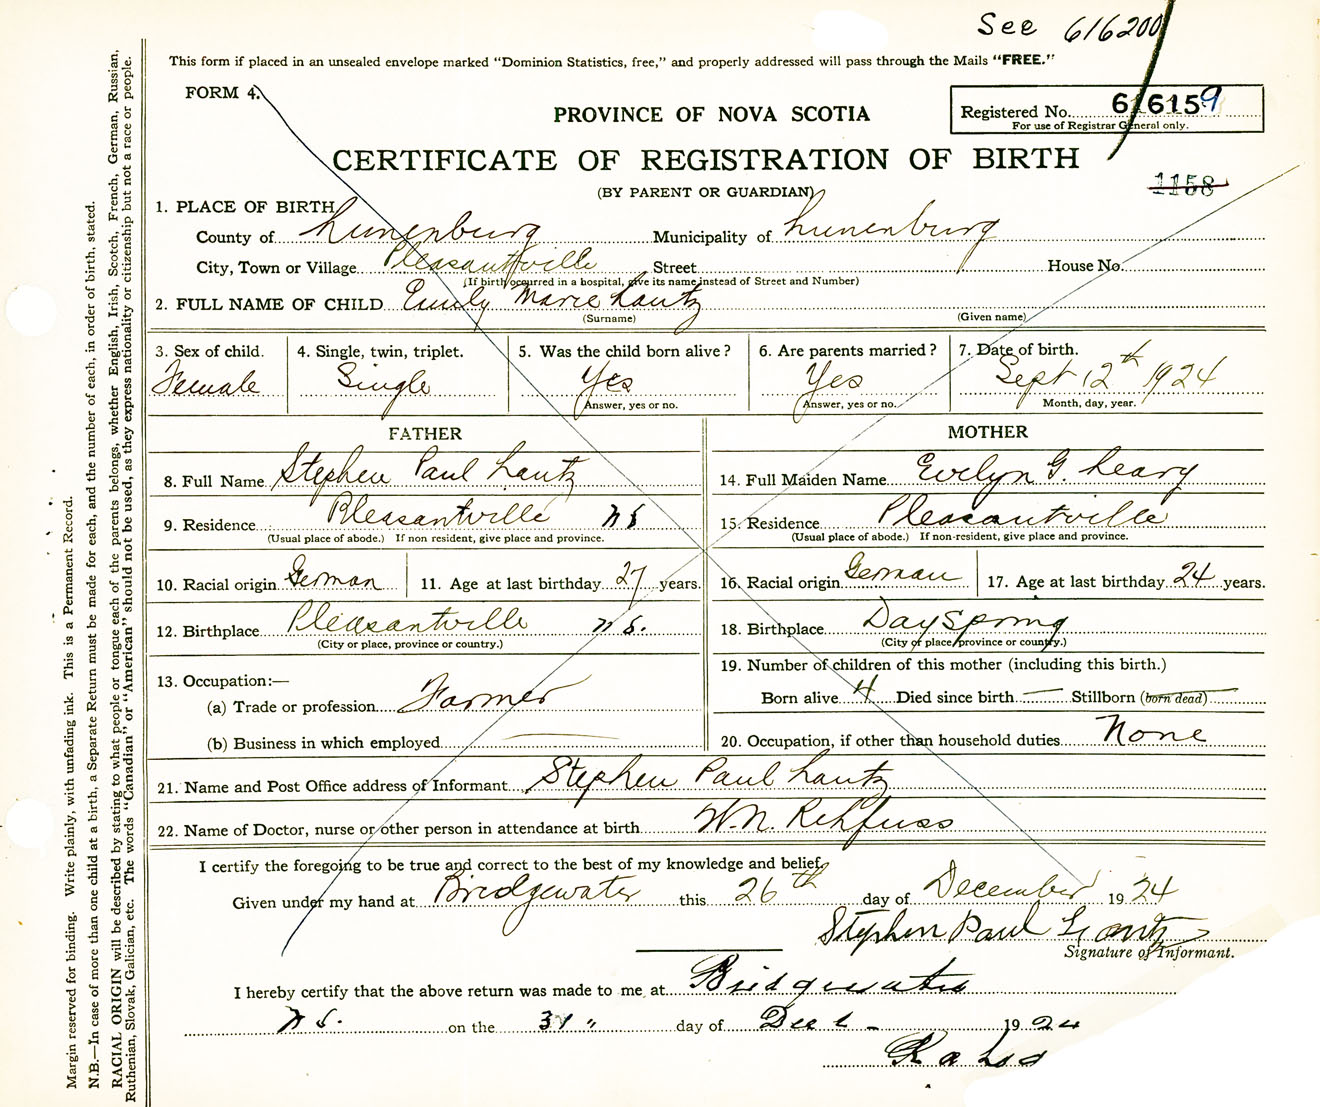 See 616200
This form if placed in an unsealed envelope marked "Dominion Statistics, free," and properly addressed will pass through the Mails "FREE."
FORM 4.
PROVINCE OF NOVA SCOTIA
Registered No. 616159
For use of Registrar General only.
CERTIFICATE OF REGISTRATION OF BIRTH
(BY PARENT OR GUARDIAN)
1158
1. PLACE OF BIRTH
County of Lunenburg Municipality of Lunenburg
City, Town or Village Pleasantville Street House No.
(If birth occurred in a hospital, give its name instead of Street and Number)
2. FULL NAME OF CHILD Emily Marie Lantz
(Surname) (Given name)
3. Sex of child. 4. Single, twin, triplet. 5. Was the child born alive? 6. Are parents married? 7. Date of birth.
Female Single Yes Yes Sept 12th 1924
Answer, yes or no. Answer, yes or no. Month, day, year.
FATHER MOTHER
8. Full Name Stephen Paul Lantz 14. Full Maiden Name Evelyn G. Leary
9. Residence Pleasantville NS 15. Residence Pleasantville
(Usual place of abode.) If non resident, give place and province. (Usual place of abode.) If non-resident, give place and province.
10. Racial origin German 11. Age at last birthday 27 years. 16. Racial origin German 17. Age at last birthday 24 years.
12. Birthplace Pleasantville NS. 18. Birthplace DaySpring
(City or place, province or country.) (City or place province or country.)
19. Number of children of this mother (including this birth.)
13. Occupation:—
(a) Trade or profession Farmer Born alive 4 Died since birth — Stillborn (born dead)
(b) Business in which employed 20. Occupation, if other than household duties None
21. Name and Post Office address of Informant Stephen Paul Lantz
22. Name of Doctor, nurse or other person in attendance at birth W. N. Rehfuss
I certify the foregoing to be true and correct to the best of my knowledge and belief,
Given under my hand at Bridgewater this 26th day of December 1924
Stephen Paul Lantz
Signature of Informant.
I hereby certify that the above return was made to me at Bridgewater
NS. on the 31 " day of Dec 1924
Margin reserved for binding. Write plainly, with unfading ink. This is a Permanent Record.
N.B.—In case of more than one child at a birth, a Separate Return must be made for each, and the number of each, in order of birth, stated.
RACIAL ORIGIN will be described by stating to what people or tongue each of the parents belongs, whether English, Irish, Scotch, French, German, Russian,
Ruthenian, Slovak, Galician, etc. The words "Canadian" or "American" should not be used, as they express nationality or citizenship but not a race or people.